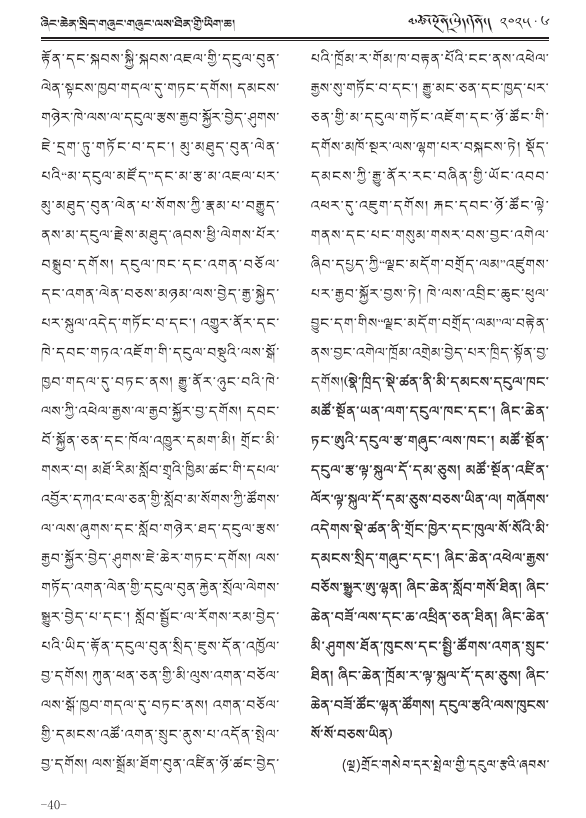 ཞིང་ཆེན་སྲིད་གཞུང་གཞུང་ལས་ཐིན་གྱི་ཡིག་ཆ།
༢༠༢༥·༤
རྟོན་དང་སྐབས་སྐྱི་སྐབས་འཇལ་གྱི་དངུལ་བུན་
ལེན་སྟངས་ཁྱབ་གདལ་དུ་གཏང་དགོས། དམངས་
གཉེར་ཁེ་ལས་ལ་དངུལ་རྩས་རྒྱབ་སྐྱོར་བྱེད་ཤུགས་
ཇེ་དྲག་ཏུ་གཏོང་བ་དང་། མུ་མཐུད་བུན་ལེན་
པའི“མ་དངུལ་མཛོད”དང་མ་རྩ་མ་འཇལ་པར་
མུ་མཐུད་བུན་ལེན་པ་སོགས་ཀྱི་རྣམ་པ་བརྒྱུད་
ནས་མ་དངུལ་རྗེས་མཐུད་ཞབས་ཕྱི་ལེགས་པོར་
བསྒྲུབ་དགོས། དངུལ་ཁང་དང་འགན་བཅོལ་
དང་འགན་ལེན་བཅས་མཉམ་ལས་བྱེད་རྒྱུ་སྐྱེད་
པར་སྐུལ་འདེད་གཏོང་བ་དང་། འགྱུར་ནོར་དང་
ཁེ་དབང་གཏའ་འཇོག་གི་དངུལ་བསྡུའི་ལས་སྒོ་
ཁྱབ་གདལ་དུ་བཏང་ནས། རྒྱུ་ནོར་ཉུང་བའི་ཁེ་
ལས་ཀྱི་འཕེལ་རྒྱས་ལ་རྒྱབ་སྐྱོར་བྱ་དགོས། དབང་
པོ་སྐྱོན་ཅན་དང་ཁོལ་འབྱུར་དམག་མི། གྲོང་མི་
གསར་བ། མཐོ་རིམ་སློབ་གྲྭའི་ཁྱིམ་ཚང་གི་དཔལ་
འབྱོར་དཀའ་ངལ་ཅན་གྱི་སློབ་མ་སོགས་ཀྱི་ཚོགས་
ལ་ལས་ཞུགས་དང་སློབ་གཉེར་ཐད་དངུལ་རྩས་
རྒྱབ་སྐྱོར་བྱེད་ཤུགས་ཇེ་ཆེར་གཏང་དགོས། ལས་
གཏོད་འགན་ལེན་གྱི་དངུལ་བུན་རྐྱེན་སྲོལ་ལེགས་
སྒྱུར་བྱེད་པ་དང་། སློབ་སྦྱོང་ལ་རོགས་རམ་བྱེད་
པའི་ཡིད་རྟོན་དངུལ་བུན་སྲིད་ཇུས་དོན་འཁྱོལ་
བྱ་དགོས། ཀུན་ཕན་ཅན་གྱི་མི་ལུས་འགན་བཅོལ་
ལས་སྒོ་ཁྱབ་གདལ་དུ་བཏང་ནས། འགན་བཅོལ་
གྱི་དམངས་འཚོ་འགན་སྲུང་ནུས་པ་འདོན་སྤེལ་
བྱ་དགོས། ལས་སྒྲོམ་ཐོག་བུན་འཛིན་ཉོ་ཚང་བྱེད་
པའི་ཁྲོམ་ར་གོམ་ཁ་བརྟན་པོའི་ངང་ནས་འཕེལ་
རྒྱས་སུ་གཏོང་བ་དང་། རྒྱུ་མང་ཅན་དང་ཁྱད་པར་
ཅན་གྱི་མ་དངུལ་གཏོང་འཇོག་དང་ཉོ་ཚོང་གི་
དགོས་མཁོ་སྔར་ལས་ལྷག་པར་བསྐངས་ཏེ། སྡོད་
དམངས་ཀྱི་རྒྱུ་ནོར་རང་བཞིན་གྱི་ཡོང་འབབ་
འཕར་དུ་འཇུག་དགོས། རྐང་དབང་ཉོ་ཚོང་ལྟེ་
གནས་དང་པང་གསུམ་གསར་བས་བྱང་འགེལ་
ཞིབ་དཔྱད་ཀྱི“ལྗང་མདོག་བགྲོད་ལམ”འཛུགས་
པར་རྒྱབ་སྐྱོར་བྱས་ཏེ། ཁེ་ལས་འབྲིང་ཆུང་ཕུལ་
བྱུང་དག་གིས“ལྗང་མདོག་བགྲོད་ལམ”ལ་བརྟེན་
ནས་བྱང་འགེལ་ཁྲོམ་འགྲེམ་བྱེད་པར་ཁྲིད་སྟོན་བྱ་
དགོས།(སྣེ་ཁྲིད་སྡེ་ཚན་ནི་མི་དམངས་དངུལ་ཁང་
མཚོ་སྔོན་ཡན་ལག་དངུལ་ཁང་དང་། ཞིང་ཆེན་
ཏང་ཨུའི་དངུལ་རྩ་གཞུང་ལས་ཁང་། མཚོ་སྔོན་
དངུལ་རྩ་ལྟ་སྐུལ་དོ་དམ་ཅུས། མཚོ་སྔོན་འཛིན་
ལོར་ལྟ་སྐུལ་དོ་དམ་ཅུས་བཅས་ཡིན་ལ། གཞོགས་
འདེགས་སྡེ་ཚན་ནི་གྲོང་ཁྱེར་དང་ཁུལ་སོ་སོའི་མི་
དམངས་སྲིད་གཞུང་དང་། ཞིང་ཆེན་འཕེལ་རྒྱས་
བཅོས་སྒྱུར་ཨུ་ལྷན། ཞིང་ཆེན་སློབ་གསོ་ཐིན། ཞིང་
ཆེན་བཟོ་ལས་དང་ཆ་འཕྲིན་ཅན་ཐིན། ཞིང་ཆེན་
མི་ཤུགས་ཐོན་ཁུངས་དང་སྤྱི་ཚོགས་འགན་སྲུང་
ཐིན། ཞིང་ཆེན་ཁྲོམ་ར་ལྟ་སྐུལ་དོ་དམ་ཅུས། ཞིང་
ཆེན་བཟོ་ཚོང་ལྷན་ཚོགས། དངུལ་རྩའི་ལས་ཁུངས་
སོ་སོ་བཅས་ཡིན)
(ལྔ)གྲོང་གསེབ་དར་སྤེལ་གྱི་དངུལ་རྩའི་ཞབས་
-40-